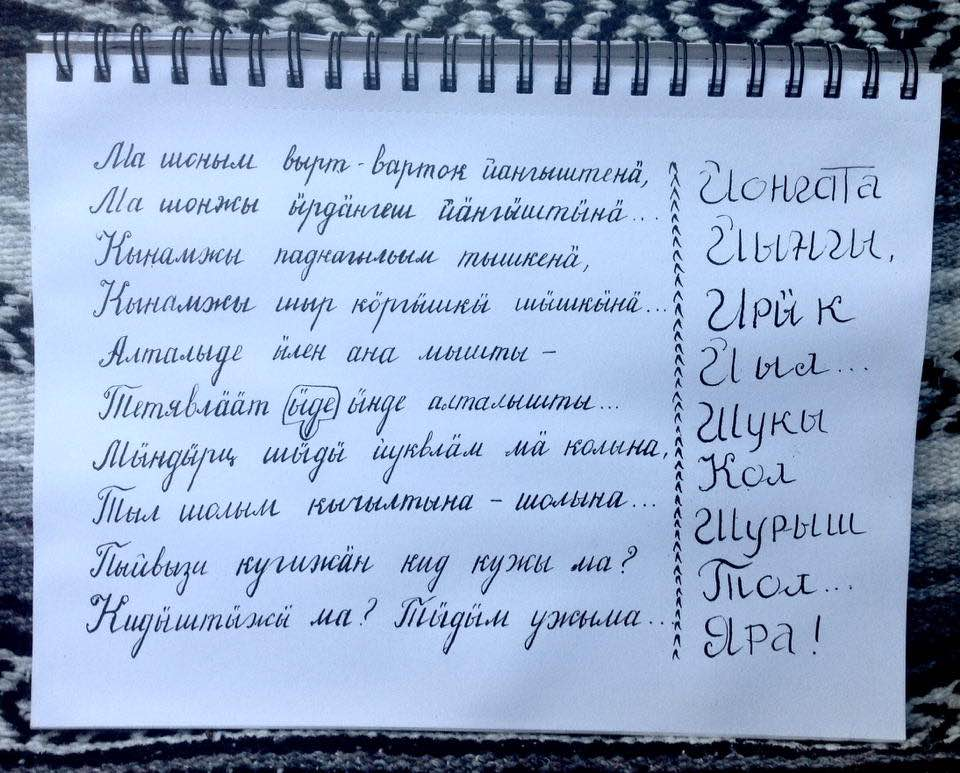 Ма шоным вырт-варток йангыштенӓ,
Ма шонжы ӹрдӓнгеш йӓнгӹштӹнӓ...
Кынамжы паднагыльым тышкенӓ,
Кынамжы шыр кӧргӹшкӹ шӹшкӹнӓ...
Алталыде ӹлен ана мышты –
Тетявлӓӓт ӹде ӹнде алталышты...
Мӹндӹрц шӹдӹ йуквлӓм мӓ колына,
Тыл шолым кычылтына – шолына...
Пыйвызи кугижӓн кид кужы ма?
Кидӹштӹжӹ ма? Тӹдӹм ужыма...
Йонгата
Йынгы,
Ирӹк
Йыл...
Шукы
Кол
Шурыш
Тол...
Яра!